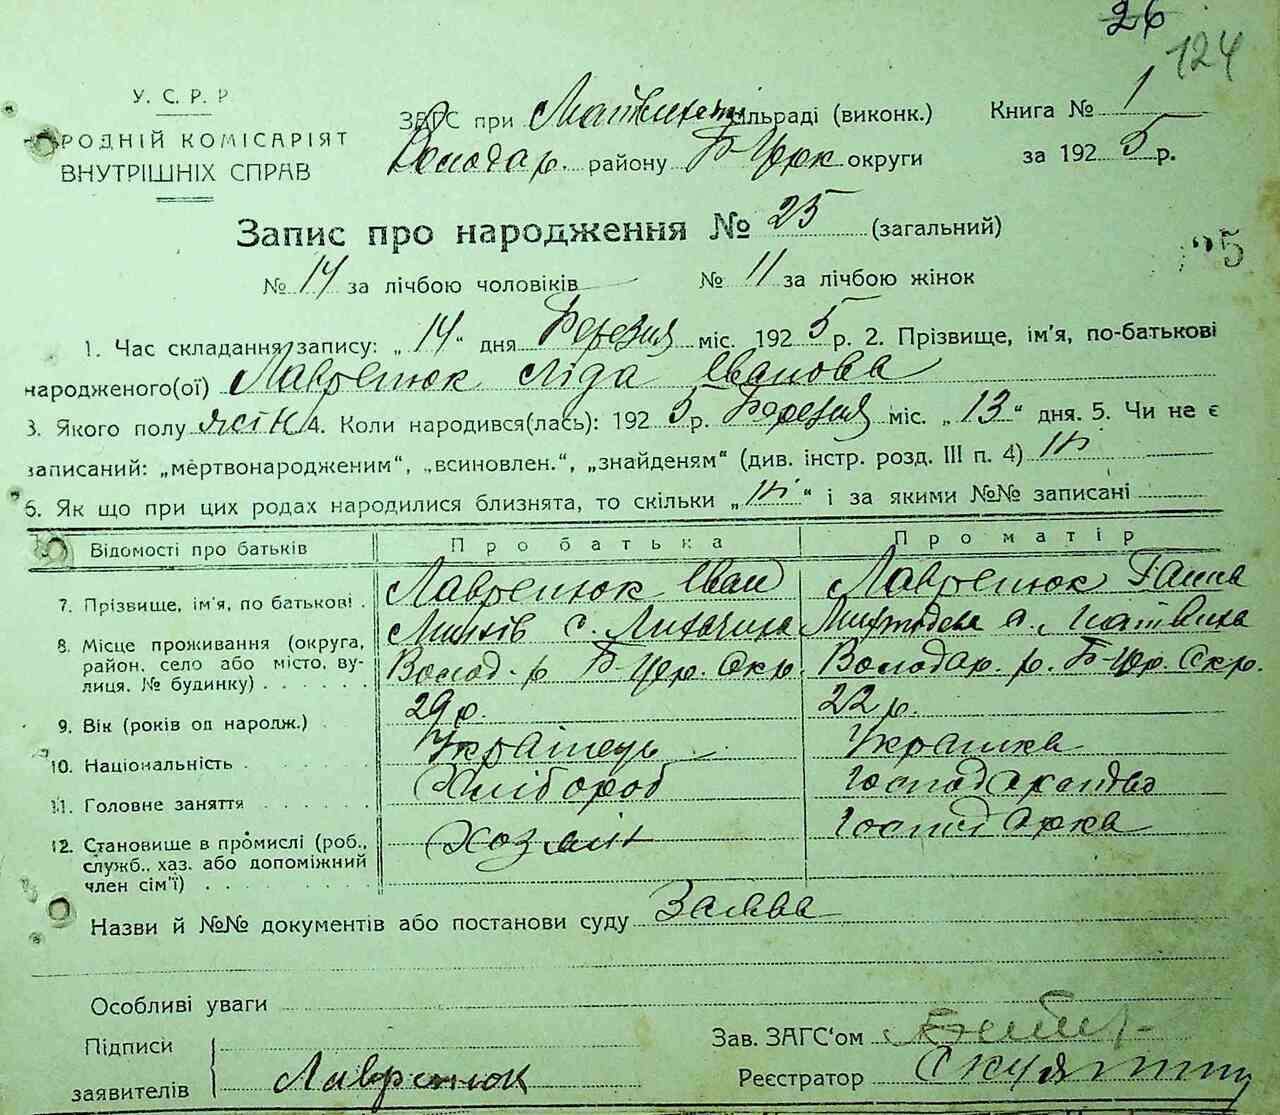 26
124
У. С. Р. Р
РОДНІЙ КОМІСАРІЯТ
ВНУТРІШНІХ СПРАВ
ЗАГС при сільраді (виконк.) Книга № 1
Володар. району Б-Церк округи за 1925 р.
Запис про народження № 25 (загальний)
№ 14 за лічбою чоловіків № 11 за лічбою жінок
1. Час складання запису: „14“ дня Березня міс. 1925 р. 2. Прізвище, ім'я, по-батькові
народженого(ої) Лавренюк Ліда Іванова
3. Якого полу жін 4. Коли народився(лась): 1925 р. Березня міс. „13“ дня. 5. Чи не є
записаний: „мертвонародженим“, „всиновлен.“, „знайденям“ (див. інстр. розд. III п. 4) Ні
6. Як що при цих родах народилися близнята, то скільки „Ні“ і за якими №№ записані
Відомості про батьків Про батька Про матір
7. Прізвище, ім'я, по батькові . Лавренюк Іван Лавренюк Ганна
8. Місце проживання (округа, район, село або місто, вулиця, № будинку) с. Волод. р Б-Цер. Окр. Володар. р. Б-Цер. Окр.
9. Вік (років од народж.) 29 р. 22 р.
10. Національність Українець Українка
11. Головне заняття Хлібороб
12. Становище в промислі (роб., служб., хаз. або допоміжний член сім'ї) Хозяін Господарка
Назви й №№ документів або постанови суду Заява
Особливі уваги
Підписи
заявителів Лавренюк
Зав. ЗАГС'ом
Реєстратор